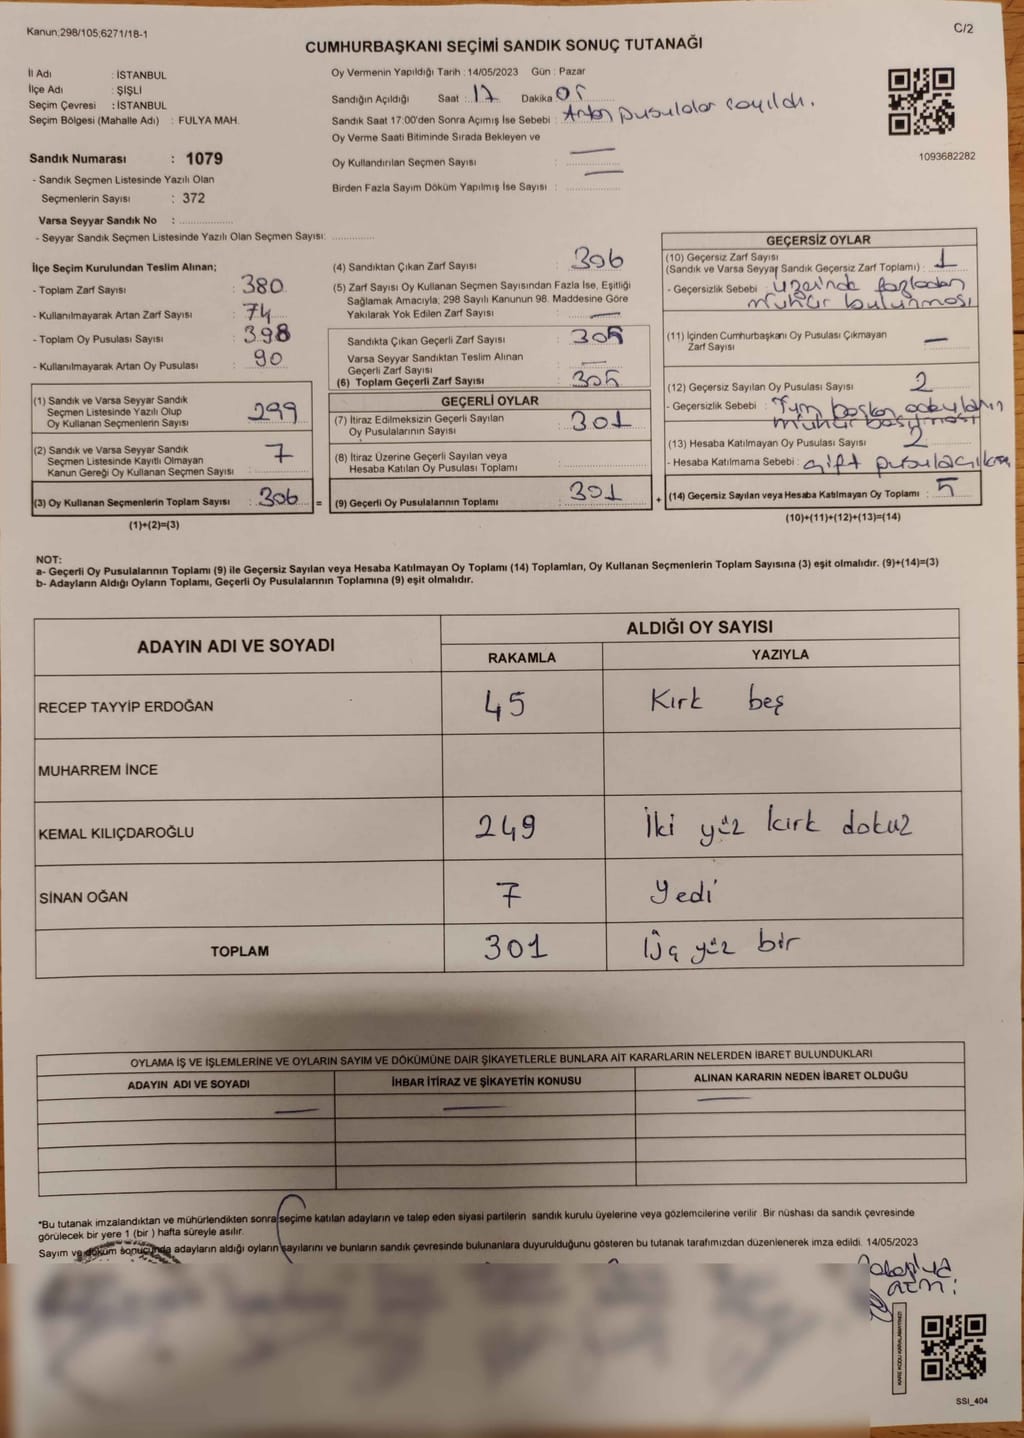 Kanun;298/105;6271/18-1
C/2
CUMHURBAŞKANI SEÇİMİ SANDIK SONUÇ TUTANAĞI
İl Adı : İSTANBUL
İlçe Adı : ŞİŞLİ
Seçim Çevresi : İSTANBUL
Seçim Bölgesi (Mahalle Adı) : FULYA MAH.
Sandık Numarası : 1079
- Sandık Seçmen Listesinde Yazılı Olan
Seçmenlerin Sayısı : 372
Varsa Seyyar Sandık No :
- Seyyar Sandık Seçmen Listesinde Yazılı Olan Seçmen Sayısı:
Oy Vermenin Yapıldığı Tarih : 14/05/2023 Gün : Pazar
Sandığın Açıldığı Saat : 17 Dakika 05
Sandık Saat 17:00'den Sonra Açımış İse Sebebi : Artan pusulalar sayıldı.
Oy Verme Saati Bitiminde Sırada Bekleyen ve
Oy Kullandırılan Seçmen Sayısı : —
Birden Fazla Sayım Döküm Yapılmış İse Sayısı : —
1093682282
İlçe Seçim Kurulundan Teslim Alınan;
- Toplam Zarf Sayısı : 380
- Kullanılmayarak Artan Zarf Sayısı : 74
- Toplam Oy Pusulası Sayısı : 398
- Kullanılmayarak Artan Oy Pusulası : 90
(1) Sandık ve Varsa Seyyar Sandık
Seçmen Listesinde Yazılı Olup
Oy Kullanan Seçmenlerin Sayısı : 299
(2) Sandık ve Varsa Seyyar Sandık
Seçmen Listesinde Kayıtlı Olmayan
Kanun Gereği Oy Kullanan Seçmen Sayısı : 7
(3) Oy Kullanan Seçmenlerin Toplam Sayısı : 306 =
(1)+(2)=(3)
(4) Sandıktan Çıkan Zarf Sayısı : 306
(5) Zarf Sayısı Oy Kullanan Seçmen Sayısından Fazla İse, Eşitliği
Sağlamak Amacıyla, 298 Sayılı Kanunun 98. Maddesine Göre
Yakılarak Yok Edilen Zarf Sayısı : —
Sandıkta Çıkan Geçerli Zarf Sayısı : 305
Varsa Seyyar Sandıktan Teslim Alınan
Geçerli Zarf Sayısı : —
(6) Toplam Geçerli Zarf Sayısı : 305
GEÇERLİ OYLAR
(7) İtiraz Edilmeksizin Geçerli Sayılan
Oy Pusulalarının Sayısı : 301
(8) İtiraz Üzerine Geçerli Sayılan veya
Hesaba Katılan Oy Pusulası Toplamı :
(9) Geçerli Oy Pusulalarının Toplamı : 301 +
GEÇERSİZ OYLAR
(10) Geçersiz Zarf Sayısı
(Sandık ve Varsa Seyyar Sandık Geçersiz Zarf Toplamı) : 1
- Geçersizlik Sebebi : Üzerinde fazladan
mühür bulunması
(11) İçinden Cumhurbaşkanı Oy Pusulası Çıkmayan
Zarf Sayısı : —
(12) Geçersiz Sayılan Oy Pusulası Sayısı : 2
- Geçersizlik Sebebi : Tüm başkan adayların
mühür basılması
(13) Hesaba Katılmayan Oy Pusulası Sayısı : 2
- Hesaba Katılmama Sebebi : Çift pusula
(14) Geçersiz Sayılan veya Hesaba Katılmayan Oy Toplamı : 5
(10)+(11)+(12)+(13)=(14)
NOT:
a- Geçerli Oy Pusulalarının Toplamı (9) ile Geçersiz Sayılan veya Hesaba Katılmayan Oy Toplamı (14) Toplamları, Oy Kullanan Seçmenlerin Toplam Sayısına (3) eşit olmalıdır. (9)+(14)=(3)
b- Adayların Aldığı Oyların Toplamı, Geçerli Oy Pusulalarının Toplamına (9) eşit olmalıdır.
ADAYIN ADI VE SOYADI
ALDIĞI OY SAYISI
RAKAMLA YAZIYLA
RECEP TAYYİP ERDOĞAN 45 Kırk beş
MUHARREM İNCE
KEMAL KILIÇDAROĞLU 249 İki yüz kırk dokuz
SİNAN OĞAN 7 Yedi
TOPLAM 301 Üç yüz bir
OYLAMA İŞ VE İŞLEMLERİNE VE OYLARIN SAYIM VE DÖKÜMÜNE DAİR ŞİKAYETLERLE BUNLARA AİT KARARLARIN NELERDEN İBARET BULUNDUKLARI
ADAYIN ADI VE SOYADI İHBAR İTİRAZ VE ŞİKAYETİN KONUSU ALINAN KARARIN NEDEN İBARET OLDUĞU
— — —
*Bu tutanak imzalandıktan ve mühürlendikten sonra seçime katılan adayların ve talep eden siyasi partilerin sandık kurulu üyelerine veya gözlemcilerine verilir. Bir nüshası da sandık çevresinde
görülecek bir yere 1 (bir ) hafta süreyle asılır.
Sayım ve döküm sonucunda adayların aldığı oyların sayılarını ve bunların sandık çevresinde bulunanlara duyurulduğunu gösteren bu tutanak tarafımızdan düzenlenerek imza edildi. 14/05/2023
SSI_404